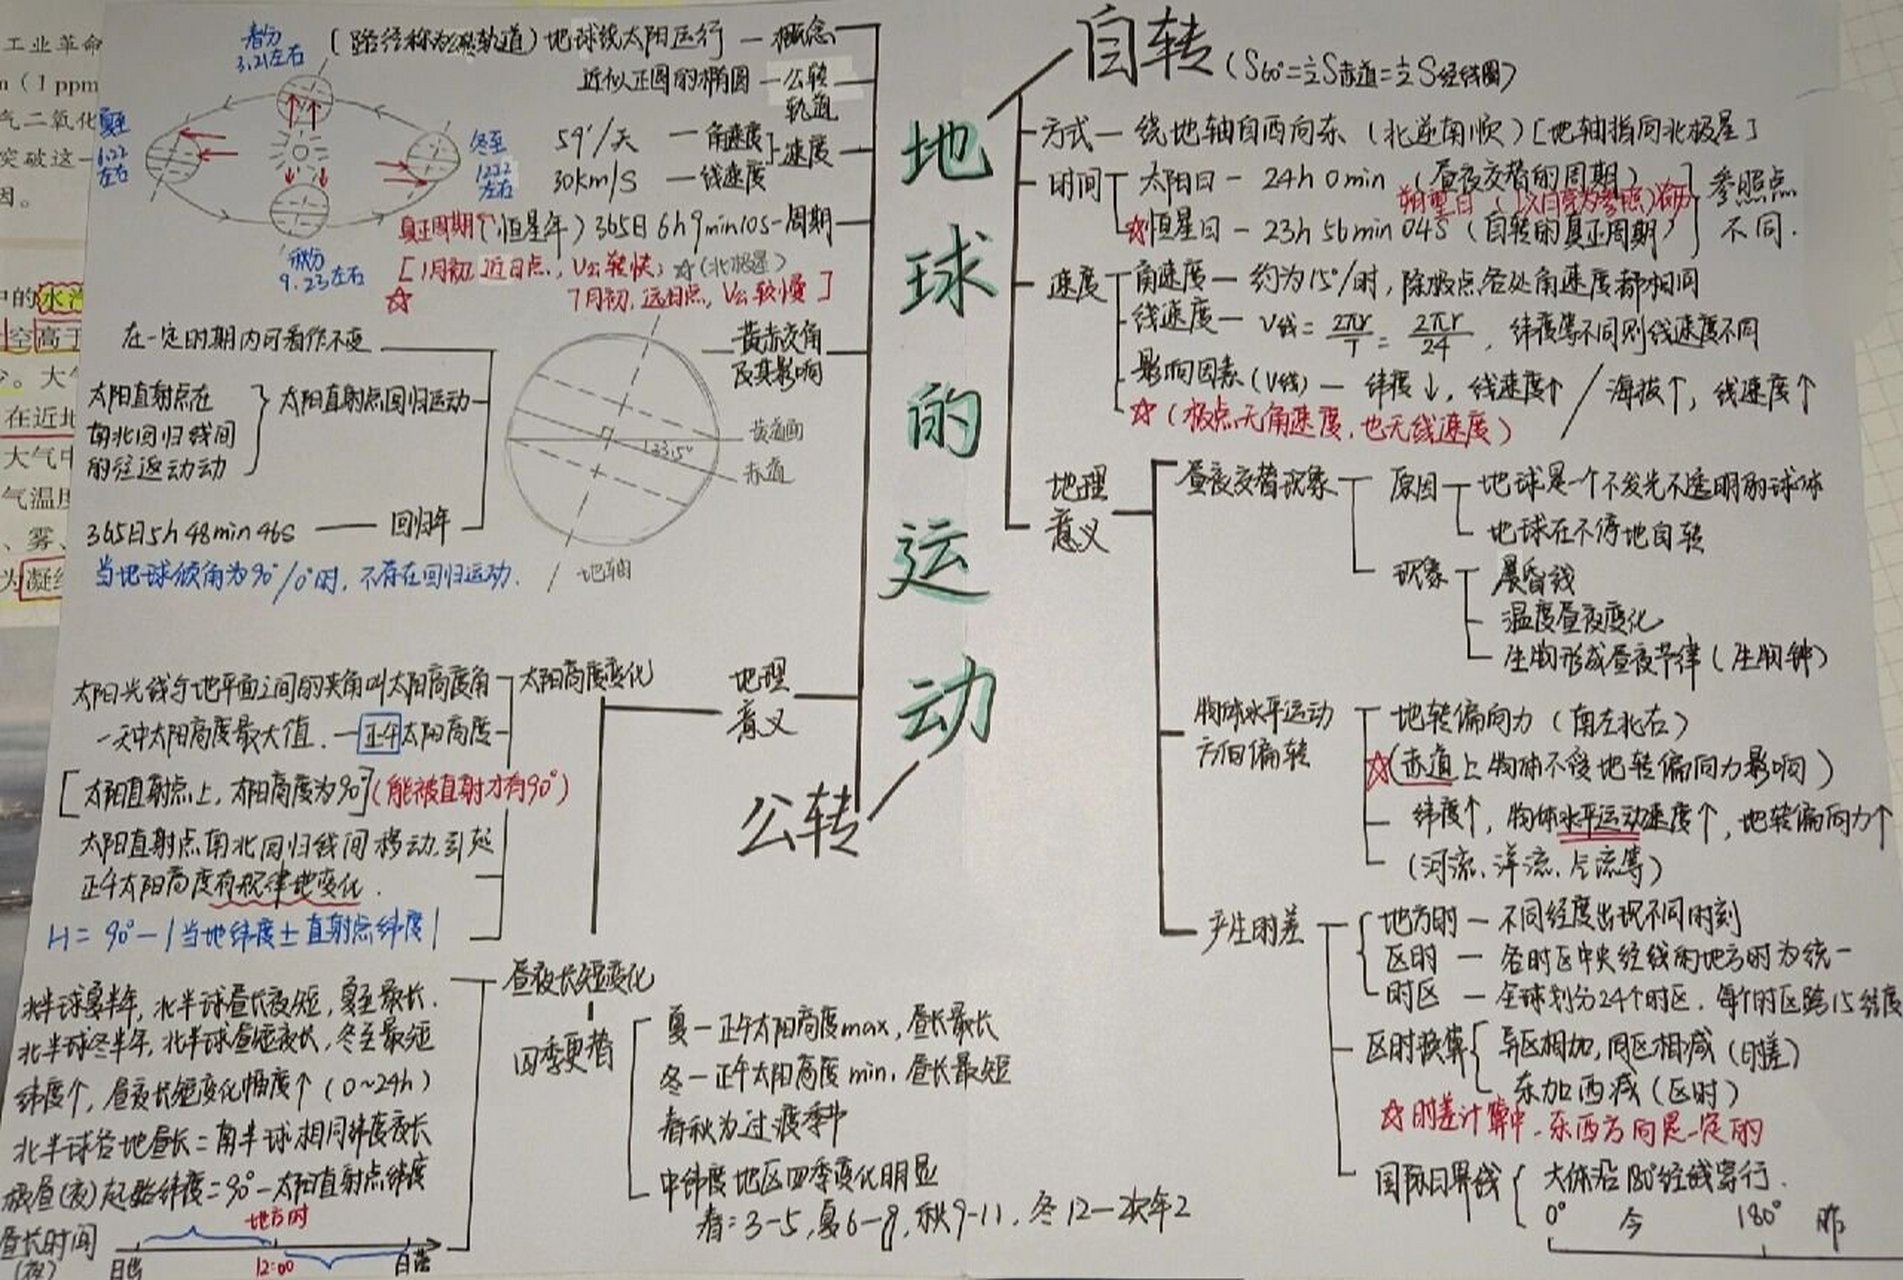 地球的运动
自转 (S60°=½S赤道=½S经线圈)
方式 — 绕地轴自西向东 (北逆南顺) [地轴指向北极星]
时间
太阳日 - 24h 0min (昼夜交替的周期)
朔望日 (以月亮为参照)
☆恒星日 - 23h 56min 04s (自转的真正周期)
参照点
不同.
速度
角速度 — 约为15°/时, 除极点各处角速度都相同
线速度 — V线 = 2πr/T = 2πr/24, 纬度等不同则线速度不同
影响因素 (V线) — 纬度↓, 线速度↑ / 海拔↑, 线速度↑
☆ (极点无角速度, 也无线速度)
地理
意义
昼夜交替现象
原因
地球是一个不发光不透明的球体
地球在不停地自转
现象
晨昏线
温度昼夜变化
生物形成昼夜节律 (生物钟)
物体水平运动
方向偏转
地转偏向力 (南左北右)
☆(赤道上物体不受地转偏向力影响)
纬度↑, 物体水平运动速度↑, 地转偏向力↑
(河流、洋流、气流等)
产生时差
地方时 — 不同经度出现不同时刻
区时 — 各时区中央经线的地方时为统一
时区 — 全球划分24个时区, 每个时区跨15经度
区时换算
异区相加, 同区相减 (时差)
东加西减 (区时)
☆时差计算中, 东西方向是一定的
国际日界线
大体沿180°经线穿行.
0° 今 180° 昨
公转
(路径称为公转轨道) 地球绕太阳运行 — 概念
近似正圆的椭圆 — 公转
轨道
59′/天 — 角速度
30km/s — 线速度
速度
真正周期 (恒星年) 365日 6h 9min 10s - 周期
[1月初, 近日点, V公转快; ☆(北极星)
☆ 7月初, 远日点, V公较慢]
春分
3.21左右
夏至
6.22
左右
冬至
12.22
左右
秋分
9.23左右
黄赤交角
及其影响
在一定时期内可看作不变
太阳直射点在
南北回归线间
的往返运动
太阳直射点回归运动
365日 5h 48min 46s — 回归年
当地球倾角为90°/0°时, 不存在回归运动.
23.5°
黄道面
赤道
地轴
地理
意义
太阳高度变化
太阳光线与地平面之间的夹角叫太阳高度角
一天中太阳高度最大值. — 正午太阳高度
[太阳直射点上, 太阳高度为90°] (能被直射才有90°)
太阳直射点南北回归线间移动, 引起
正午太阳高度有规律地变化.
H = 90° - |当地纬度 ± 直射点纬度|
昼夜长短变化
北半球夏半年, 北半球昼长夜短, 夏至最长.
北半球冬半年, 北半球昼短夜长, 冬至最短
纬度个, 昼夜长短变化幅度↑ (0~24h)
北半球各地昼长 = 南半球相同纬度夜长
极昼(夜)起始纬度 = 90° - 太阳直射点纬度
昼长时间
(夜)
地方时
日出 12:00 日落
四季更替
夏 — 正午太阳高度max, 昼长最长
冬 — 正午太阳高度min, 昼长最短
春秋为过渡季节
中纬度地区四季变化明显
春: 3-5, 夏6-8, 秋9-11, 冬12-次年2
工业革命
m (1 ppm
气二氧化
突破这一
因。
中的水汽
空高于
大气
在近地
大气中
气温度
、雾、
为凝结